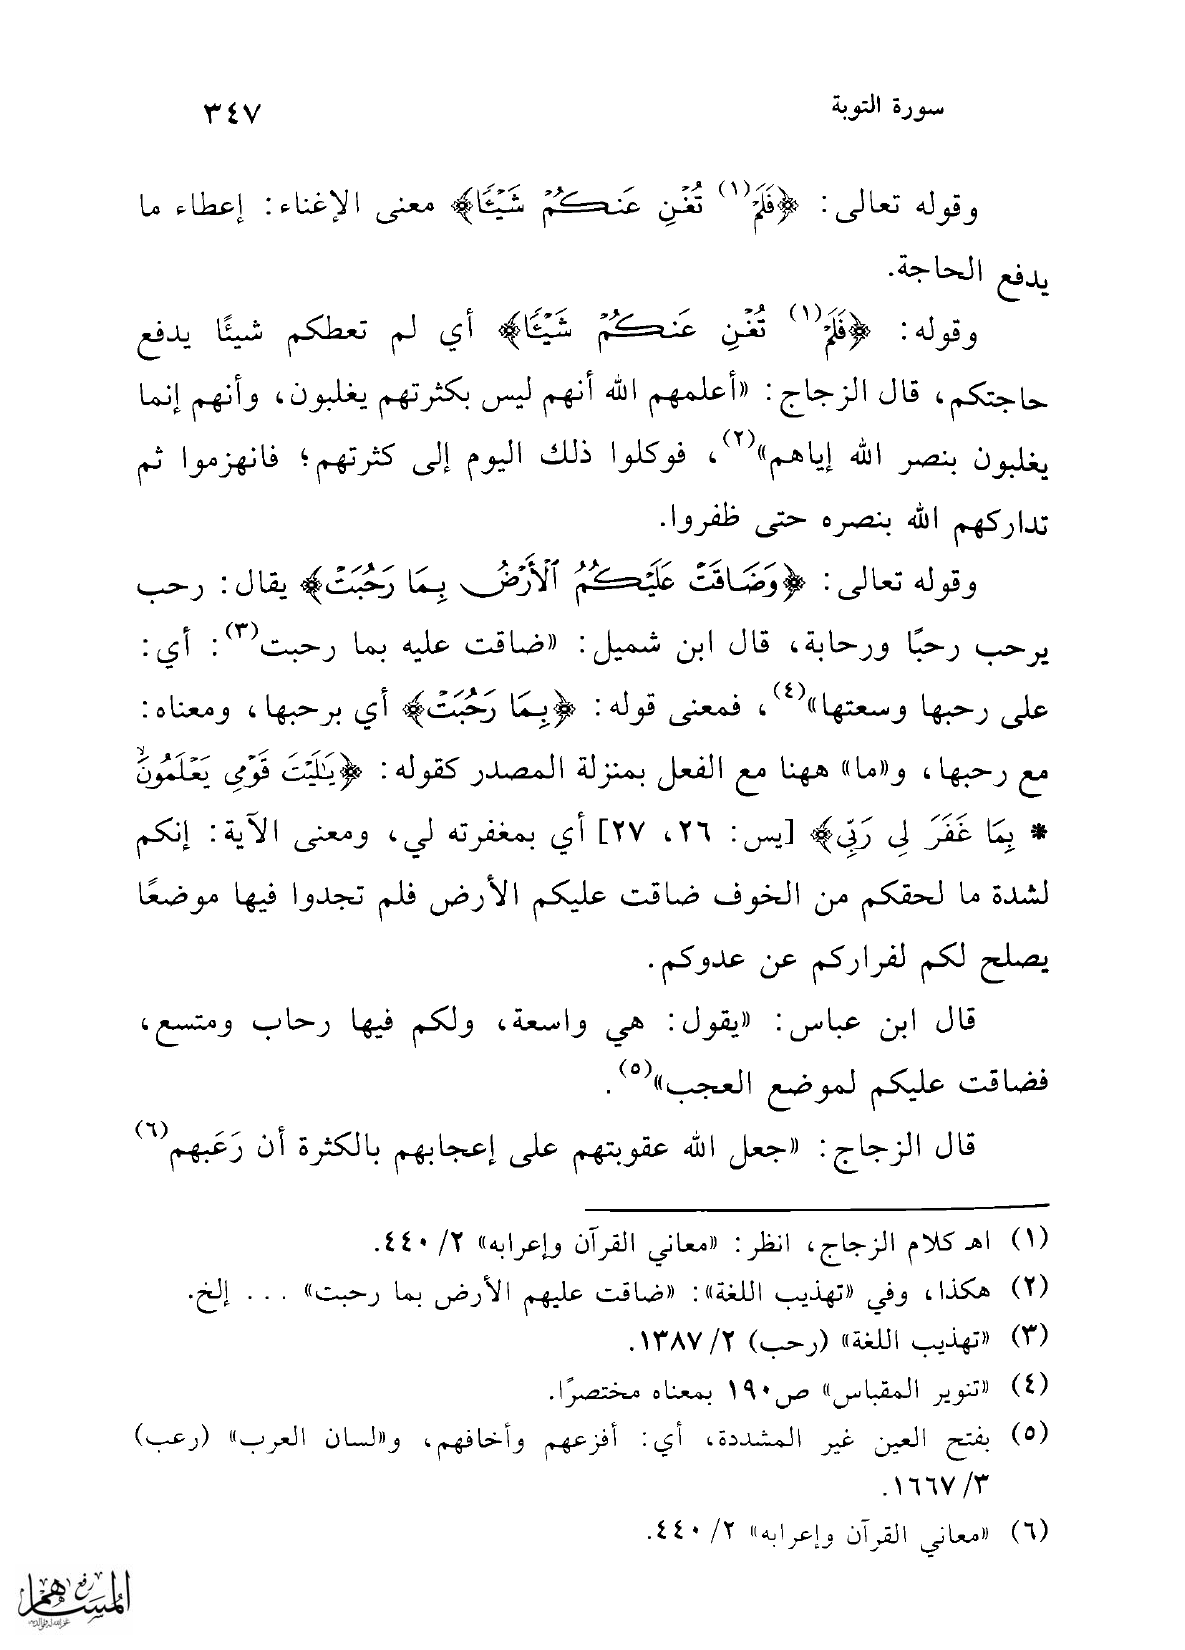 سورة التوبة
٣٤٧
وقوله تعالى: ﴿فَلَمْ(١) تُغْنِ عَنكُمْ شَيْـًٔا﴾ معنى الإغناء: إعطاء ما
يدفع الحاجة.
وقوله: ﴿فَلَمْ(١) تُغْنِ عَنكُمْ شَيْـًٔا﴾ أي لم تعطكم شيئًا يدفع
حاجتكم، قال الزجاج: «أعلمهم الله أنهم ليس بكثرتهم يغلبون، وأنهم إنما
يغلبون بنصر الله إياهم»(٢)، فوكلوا ذلك اليوم إلى كثرتهم؛ فانهزموا ثم
تداركهم الله بنصره حتى ظفروا.
وقوله تعالى: ﴿وَضَاقَتْ عَلَيْكُمُ ٱلْأَرْضُ بِمَا رَحُبَتْ﴾ يقال: رحب
يرحب رحبًا ورحابة، قال ابن شميل: «ضاقت عليه بما رحبت(٣): أي:
على رحبها وسعتها»(٤)، فمعنى قوله: ﴿بِمَا رَحُبَتْ﴾ أي برحبها، ومعناه:
مع رحبها، و«ما» ههنا مع الفعل بمنزلة المصدر كقوله: ﴿يَٰلَيْتَ قَوْمِى يَعْلَمُونَۙ
* بِمَا غَفَرَ لِى رَبِّى﴾ [يس: ٢٦، ٢٧] أي بمغفرته لي، ومعنى الآية: إنكم
لشدة ما لحقكم من الخوف ضاقت عليكم الأرض فلم تجدوا فيها موضعًا
يصلح لكم لفراركم عن عدوكم.
قال ابن عباس: «يقول: هي واسعة، ولكم فيها رحاب ومتسع،
فضاقت عليكم لموضع العجب»(٥).
قال الزجاج: «جعل الله عقوبتهم على إعجابهم بالكثرة أن رَعَبهم(٦)
(١) اهـ كلام الزجاج، انظر: «معاني القرآن وإعرابه» ٢/ ٤٤٠.
(٢) هكذا، وفي «تهذيب اللغة»: «ضاقت عليهم الأرض بما رحبت» ... إلخ.
(٣) «تهذيب اللغة» (رحب) ٢/ ١٣٨٧.
(٤) «تنوير المقباس» ص١٩٠ بمعناه مختصرًا.
(٥) بفتح العين غير المشددة، أي: أفزعهم وأخافهم، و«لسان العرب» (رعب)
٣/ ١٦٦٧.
(٦) «معاني القرآن وإعرابه» ٢/ ٤٤٠.